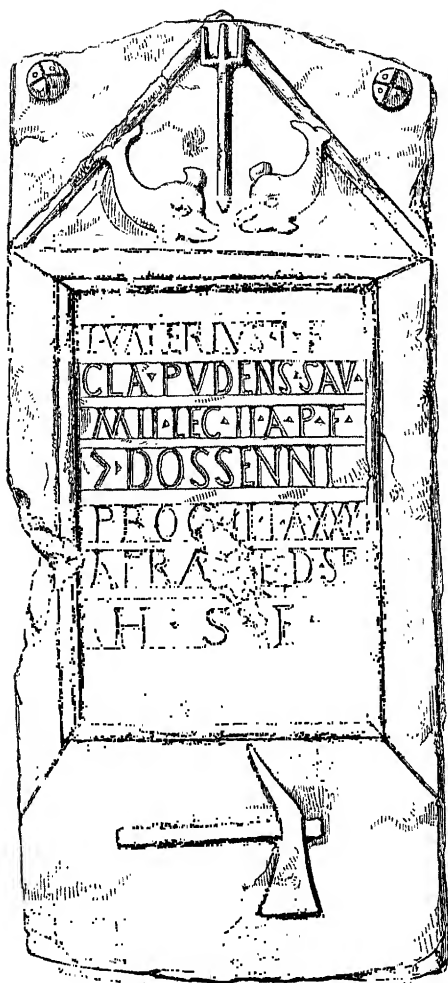 T·VALERIVS·T·F
CLA·PVDENS·SAV·
MIL·LEG·II·A·P·F·
>·DOSSENNI
PROCVLI·A·XXX
AERA D·S·P
H·S·E·